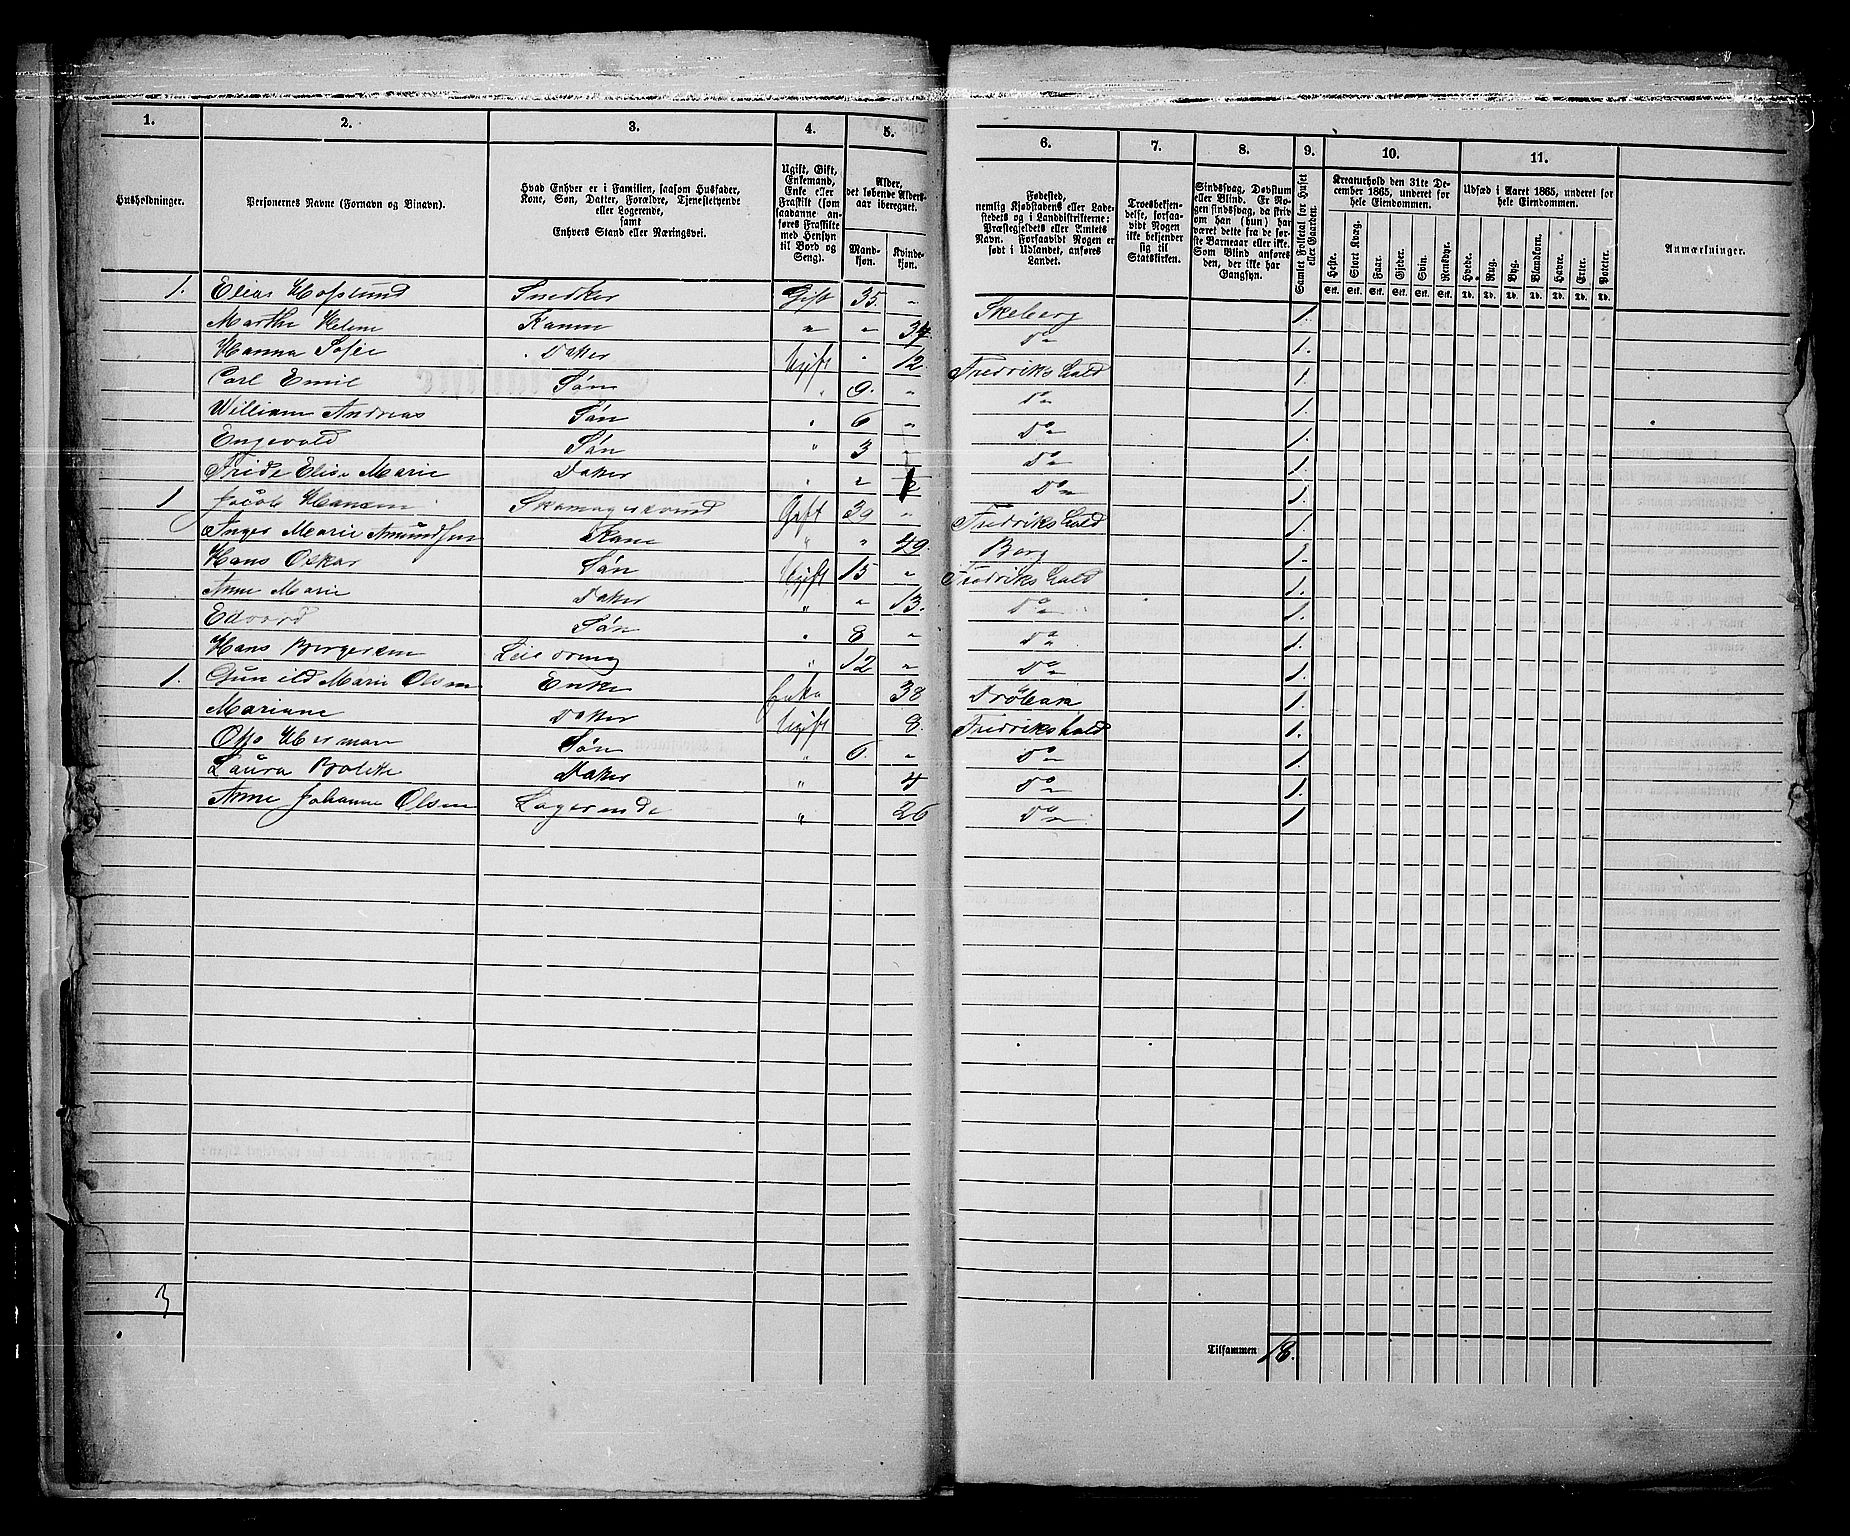 1. 2. 3. 4. 5. 6. 7. 8. 9. 10. 11.
Husholdninger.
Personernes Navne (Fornavn og Binavn).
Hvad Enhver er i Familien, saasom Husfader,
Kone, Søn, Datter, Forældre, Tjenestetyende
eller Logerende,
samt
Enhvers Stand eller Næringsvei.
Ugift, Gift,
Enkemand,
Enke eller
Fraskilt (som
saadanne an-
føres Fraskilte
med Hensyn
til Bord og
Seng).
Alder,
det løbende Alders-
aar iberegnet.
Mand-
kjøn.
Kvinde-
kjøn.
Fødested,
nemlig Kjøbstadens eller Lade-
stedets og i Landdistrikterne:
Præstegjeldets eller Amtets
Navn. Forsaavidt Nogen er
født i Udlandet, anføres
Landet.
Troesbekjen-
delse, forsaa-
vidt Nogen
ikke bekjender
sig til
Statskirken.
Sindssvag, Døvstum
eller Blind. Er No-
gen sindssvag, da skriv
om han (hun) har
været dette fra de før-
ste Barneaar eller ikke.
Som Blind anføres
den, der ikke har
Gangsyn.
Samlet Folketal for Huset
eller Gaarden.
Kreaturhold den 31te De-
cember 1865, underet for
hele Eiendommen.
Heste. Stort Kvæg. Faar. Gjeder. Svin. Rensdyr.
Stk. Stk. Stk. Stk. Stk. Stk.
Udsæd i Aaret 1865, underet for
hele Eiendommen.
Hvede. Rug. Byg. Blandkorn. Havre. Erter. Poteter.
Td. Td. Td. Td. Td. Td. Td.
Anmærkninger.
1. Elias Hoflund Snedker Gift 35 " Skeberg 1.
Marthe Helene Kanne " " 34 Do 1.
Hanna Sofie Daker Ugift " 12. Fredrikshald 1.
Carl Emil Søn " 9. " Do 1.
William Andreas Søn " 6 " Do 1.
Engevald Søn " 3 " Do 1.
Fride Elise Marie Daker " " Do 1.
1 Jacob Hansen Skomagersvend Gift 39 " Fredrikshald 1.
Inger Marie Amundsen Kane " " 49. Berg 1.
Hans Oskar Søn Ugift 15 " Fredrikshald 1.
Anne Marie Daker " " 13. Do 1.
Edvard Søn " 8 " Do 1.
Hans Borgersen " 12 " Do 1.
1. Gunild Marie Olsen Enke Enke 38 Drøbak 1.
Mariane Daker Ugift 8. Fredrikshald 1.
Otto Herman Søn " 6. " Do 1.
Laura Bolette Daker " 4 Do 1.
Anne Johanne Olsen Logerende " 26 Do 1
3
Tilsammen 18.